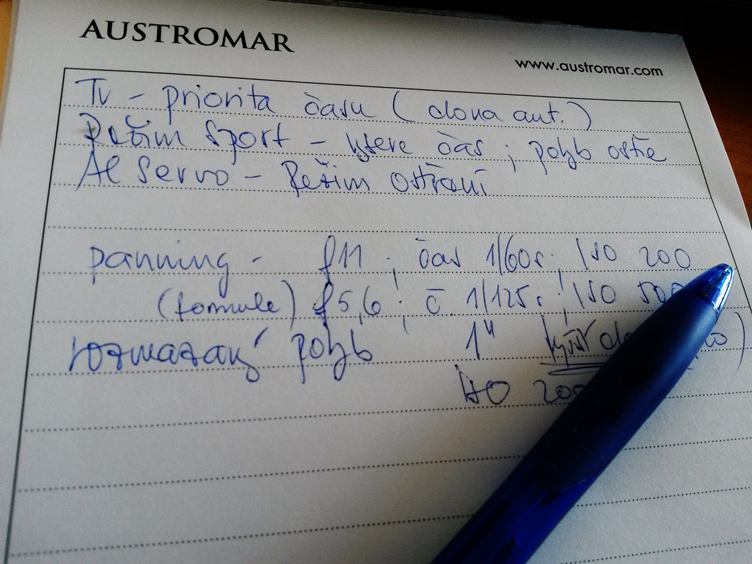 AUSTROMAR
www.austromar.com
Tv - priorita času (clona aut.)
Režim Sport - čas ; pohyb ostře
AI Servo - Režim ostření
panning - f11 ; čas 1/60s ; ISO 200
(formule) f5,6 ; č. 1/125s ; ISO
rozmazaný pohyb 1"
ISO